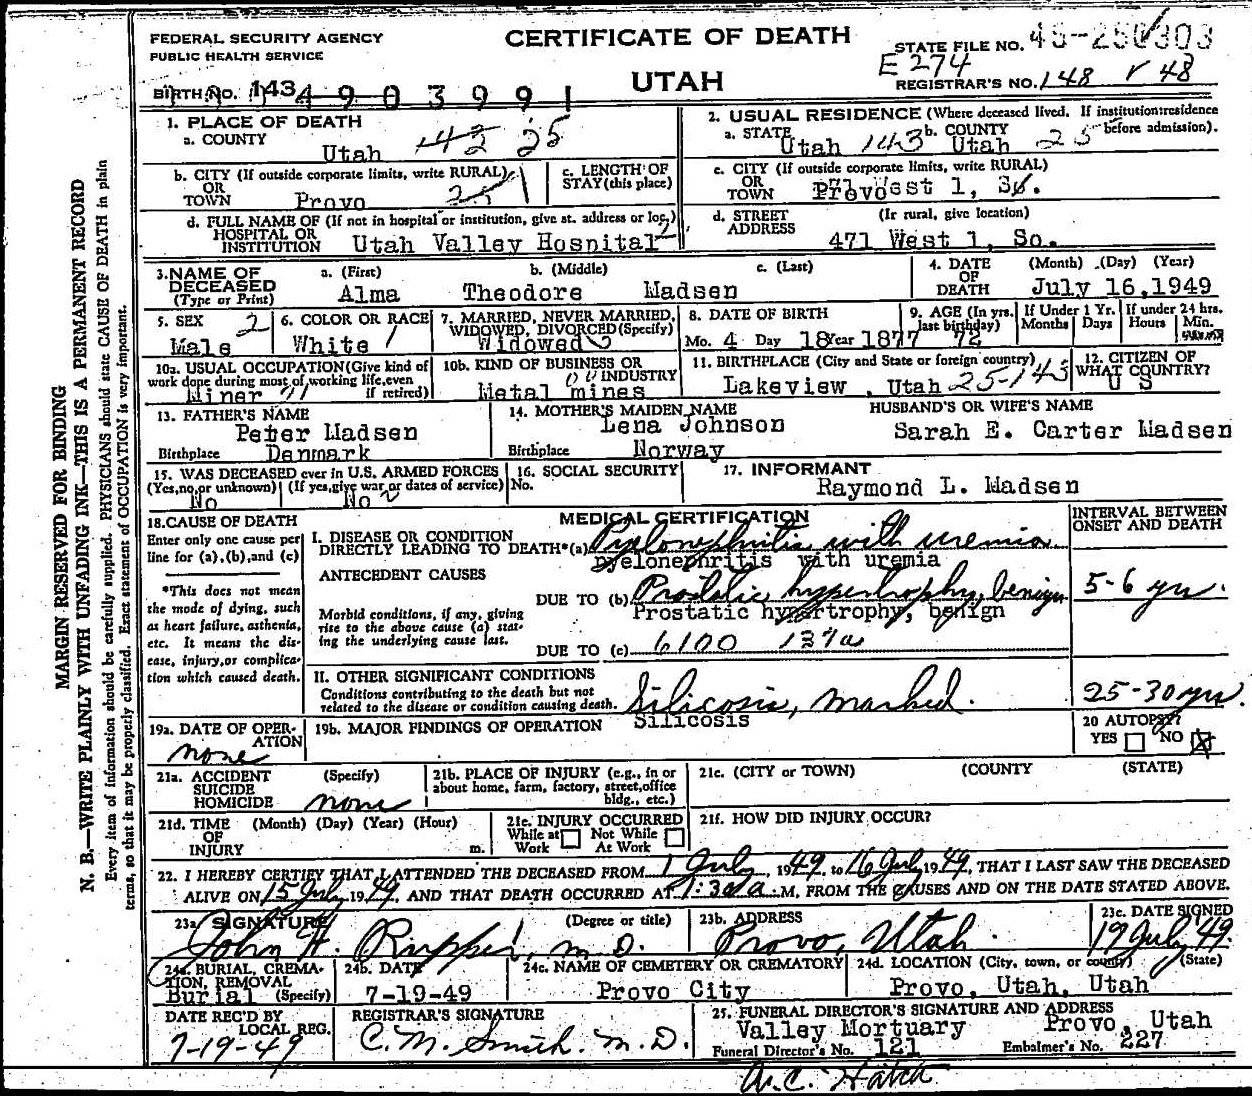 FEDERAL SECURITY AGENCY
PUBLIC HEALTH SERVICE
CERTIFICATE OF DEATH
UTAH
STATE FILE NO.
E 274
REGISTRAR'S NO. 148 V 48
BIRTH NO. 143 4 9 0 3 9 9 1
1. PLACE OF DEATH
a. COUNTY
Utah 25
2. USUAL RESIDENCE (Where deceased lived. If institution: residence before admission).
a. STATE Utah 143 b. COUNTY Utah 25
b. CITY (If outside corporate limits, write RURAL)
OR
TOWN Provo
c. LENGTH OF
STAY (this place)
c. CITY (If outside corporate limits, write RURAL)
OR
TOWN Provo
d. FULL NAME OF (If not in hospital or institution, give st. address or loc.)
HOSPITAL OR
INSTITUTION Utah Valley Hospital
d. STREET (If rural, give location)
ADDRESS 471 West 1, So.
3. NAME OF DECEASED (Type or Print)
a. (First) b. (Middle) c. (Last)
Alma Theodore Madsen
4. DATE OF DEATH (Month) (Day) (Year)
July 16, 1949
5. SEX 2
Male
6. COLOR OR RACE
White 1
7. MARRIED, NEVER MARRIED, WIDOWED, DIVORCED (Specify)
Widowed
8. DATE OF BIRTH
Mo. 4 Day 18 Year 1877
9. AGE (In yrs. last birthday)
72
If Under 1 Yr. Months Days
If under 24 hrs. Hours Min.
10a. USUAL OCCUPATION (Give kind of work done during most of working life, even if retired)
Miner
10b. KIND OF BUSINESS OR INDUSTRY
Metal mines
11. BIRTHPLACE (City and State or foreign country)
Lakeview, Utah 25-143
12. CITIZEN OF WHAT COUNTRY?
U S
13. FATHER'S NAME
Peter Madsen
Birthplace Denmark
14. MOTHER'S MAIDEN NAME
Lena Johnson
Birthplace Norway
HUSBAND'S OR WIFE'S NAME
Sarah E. Carter Madsen
15. WAS DECEASED ever in U.S. ARMED FORCES
(Yes, no, or unknown) (If yes, give war or dates of service)
No No
16. SOCIAL SECURITY
No.
17. INFORMANT
Raymond L. Madsen
18. CAUSE OF DEATH
Enter only one cause per line for (a), (b), and (c)
*This does not mean the mode of dying, such as heart failure, asthenia, etc. It means the disease, injury, or complication which caused death.
MEDICAL CERTIFICATION
INTERVAL BETWEEN ONSET AND DEATH
I. DISEASE OR CONDITION
DIRECTLY LEADING TO DEATH*(a) Pyelonephritis with uremia
Pyelonephritis with uremia
ANTECEDENT CAUSES
DUE TO (b) Prostatic hypertrophy, benign 5-6 yrs.
Prostatic hypertrophy, benign
Morbid conditions, if any, giving rise to the above cause (a) stating the underlying cause last.
DUE TO (c) 6100 137a
II. OTHER SIGNIFICANT CONDITIONS
Conditions contributing to the death but not related to the disease or condition causing death.
Silicosis, marked. 25-30 yrs.
Silicosis
19a. DATE OF OPERATION
none
19b. MAJOR FINDINGS OF OPERATION
20 AUTOPSY?
YES NO
21a. ACCIDENT
SUICIDE
HOMICIDE
(Specify)
none
21b. PLACE OF INJURY (e.g., in or about home, farm, factory, street, office bldg., etc.)
21c. (CITY or TOWN) (COUNTY) (STATE)
21d. TIME OF INJURY
(Month) (Day) (Year) (Hour)
m.
21e. INJURY OCCURRED
While at Work Not While At Work
21f. HOW DID INJURY OCCUR?
22. I HEREBY CERTIFY THAT I ATTENDED THE DECEASED FROM 1 July, 1949, to 16 July 1949, THAT I LAST SAW THE DECEASED
ALIVE ON 15 July 1949, AND THAT DEATH OCCURRED AT 1:30 a.M, FROM THE CAUSES AND ON THE DATE STATED ABOVE.
23a SIGNATURE (Degree or title)
John H. Rupper M.D.
23b. ADDRESS
Provo, Utah
23c. DATE SIGNED
19 July 49
24a. BURIAL, CREMATION, REMOVAL (Specify)
Burial
24b. DATE
7-19-49
24c. NAME OF CEMETERY OR CREMATORY
Provo City
24d. LOCATION (City, town, or county) (State)
Provo, Utah, Utah
DATE REC'D BY LOCAL REG.
7-19-49
REGISTRAR'S SIGNATURE
C. M. Smith. M. D.
25. FUNERAL DIRECTOR'S SIGNATURE AND ADDRESS
Valley Mortuary Provo, Utah
Funeral Director's No. 121 Embalmer's No. 227
A. C. Hatch
MARGIN RESERVED FOR BINDING
N. B.—WRITE PLAINLY WITH UNFADING INK—THIS IS A PERMANENT RECORD
Every item of information should be carefully supplied. PHYSICIANS should state CAUSE OF DEATH in plain
terms, so that it may be properly classified. Exact statement of OCCUPATION is very important.